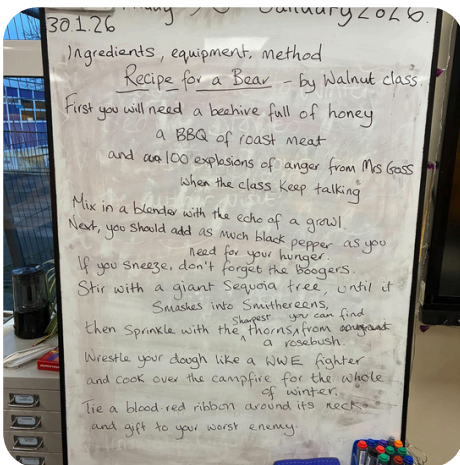 January 2026.
30.1.26
Ingredients, equipment, method
Recipe for a Bear - by Walnut class.
First you will need a beehive full of honey
a BBQ of roast meat
and 100 explosions of anger from Mrs Goss
when the class keep talking
Mix in a blender with the echo of a growl.
Next, you should add as much black pepper as you
need for your hunger.
If you sneeze, don't forget the boogers.
Stir with a giant Sequoia tree, until it
Smashes into Smithereens,
then Sprinkle with the sharpest thorns you can find from
a rosebush.
Wrestle your dough like a WWE fighter
and cook over the campfire for the whole
of winter.
Tie a blood-red ribbon around its neck
and gift to your worst enemy.